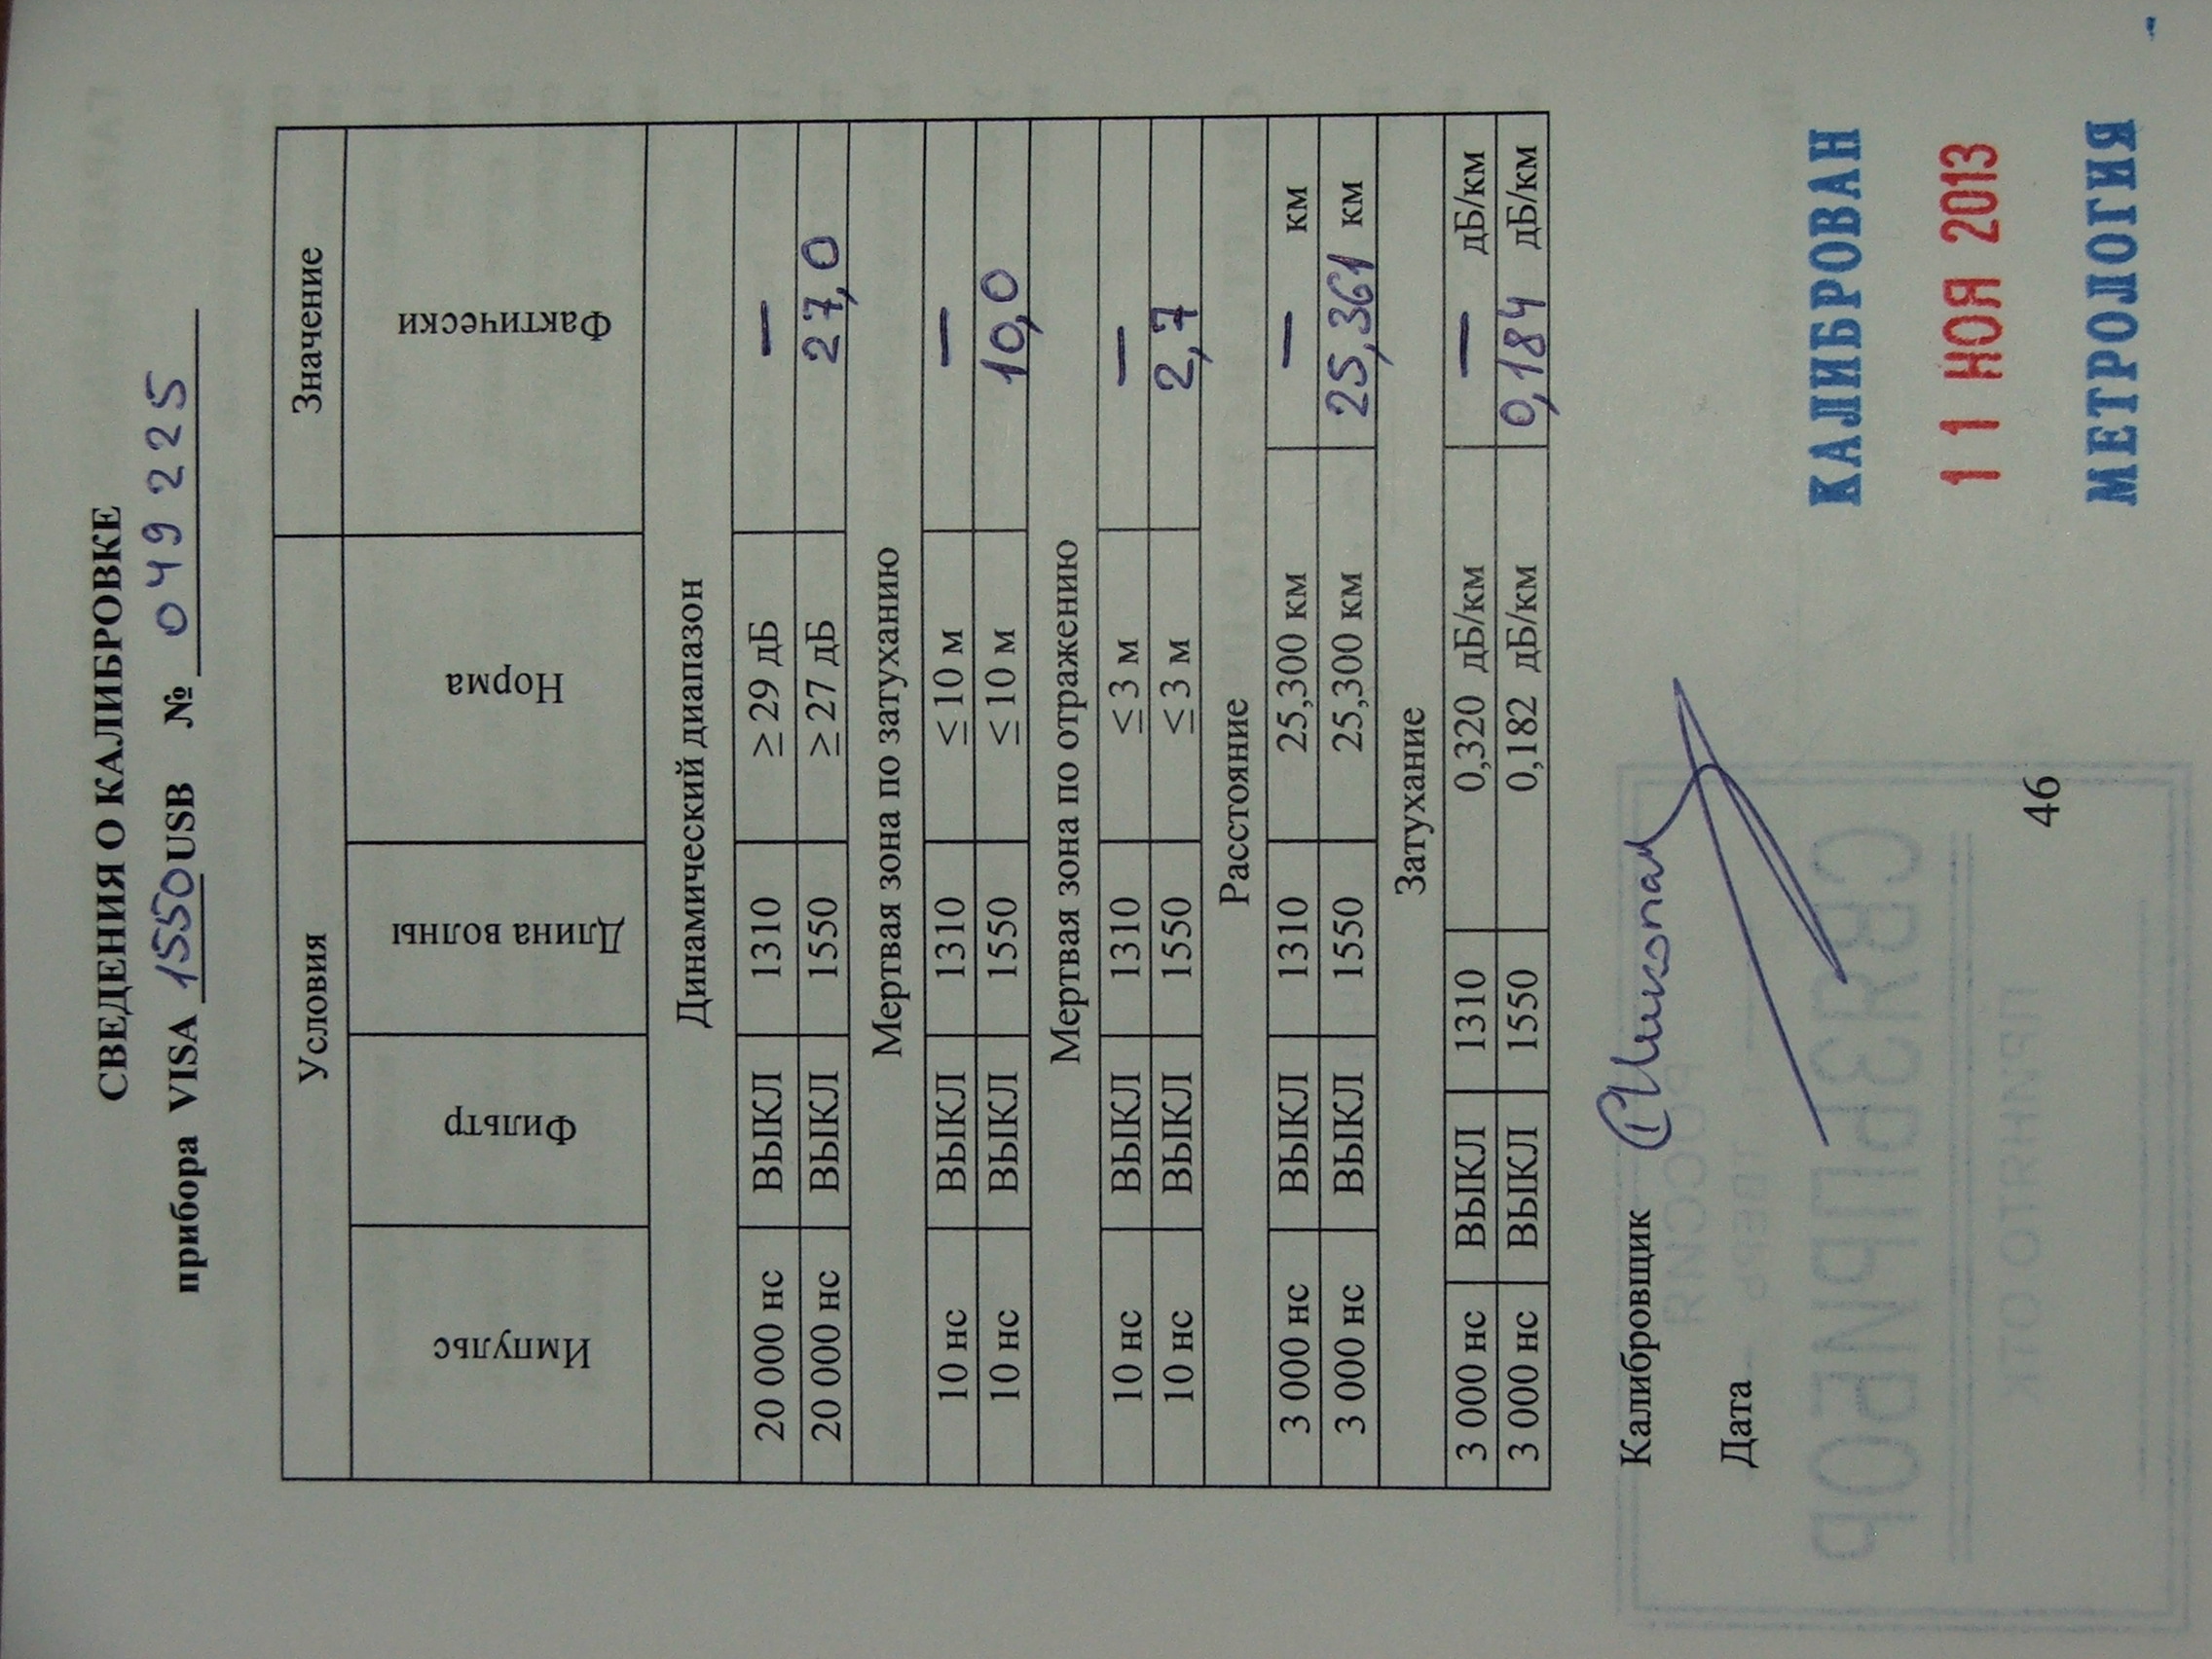 СВЕДЕНИЯ О КАЛИБРОВКЕ
прибора VISA 1550 USB № 049225
Условия Значение
Импульс Фильтр Длина волны Норма Фактически
Динамический диапазон
20 000 нс ВЫКЛ 1310 ≥ 29 дБ —
20 000 нс ВЫКЛ 1550 ≥ 27 дБ 27,0
Мертвая зона по затуханию
10 нс ВЫКЛ 1310 ≤ 10 м —
10 нс ВЫКЛ 1550 ≤ 10 м 10,0
Мертвая зона по отражению
10 нс ВЫКЛ 1310 ≤ 3 м —
10 нс ВЫКЛ 1550 ≤ 3 м 2,7
Расстояние
3 000 нс ВЫКЛ 1310 25,300 км — км
3 000 нс ВЫКЛ 1550 25,300 км 25,361 км
Затухание
3 000 нс ВЫКЛ 1310 0,320 дБ/км — дБ/км
3 000 нс ВЫКЛ 1550 0,182 дБ/км 0,184 дБ/км
Калибровщик
Дата
КАЛИБРОВАН
11 НОЯ 2013
МЕТРОЛОГИЯ
46